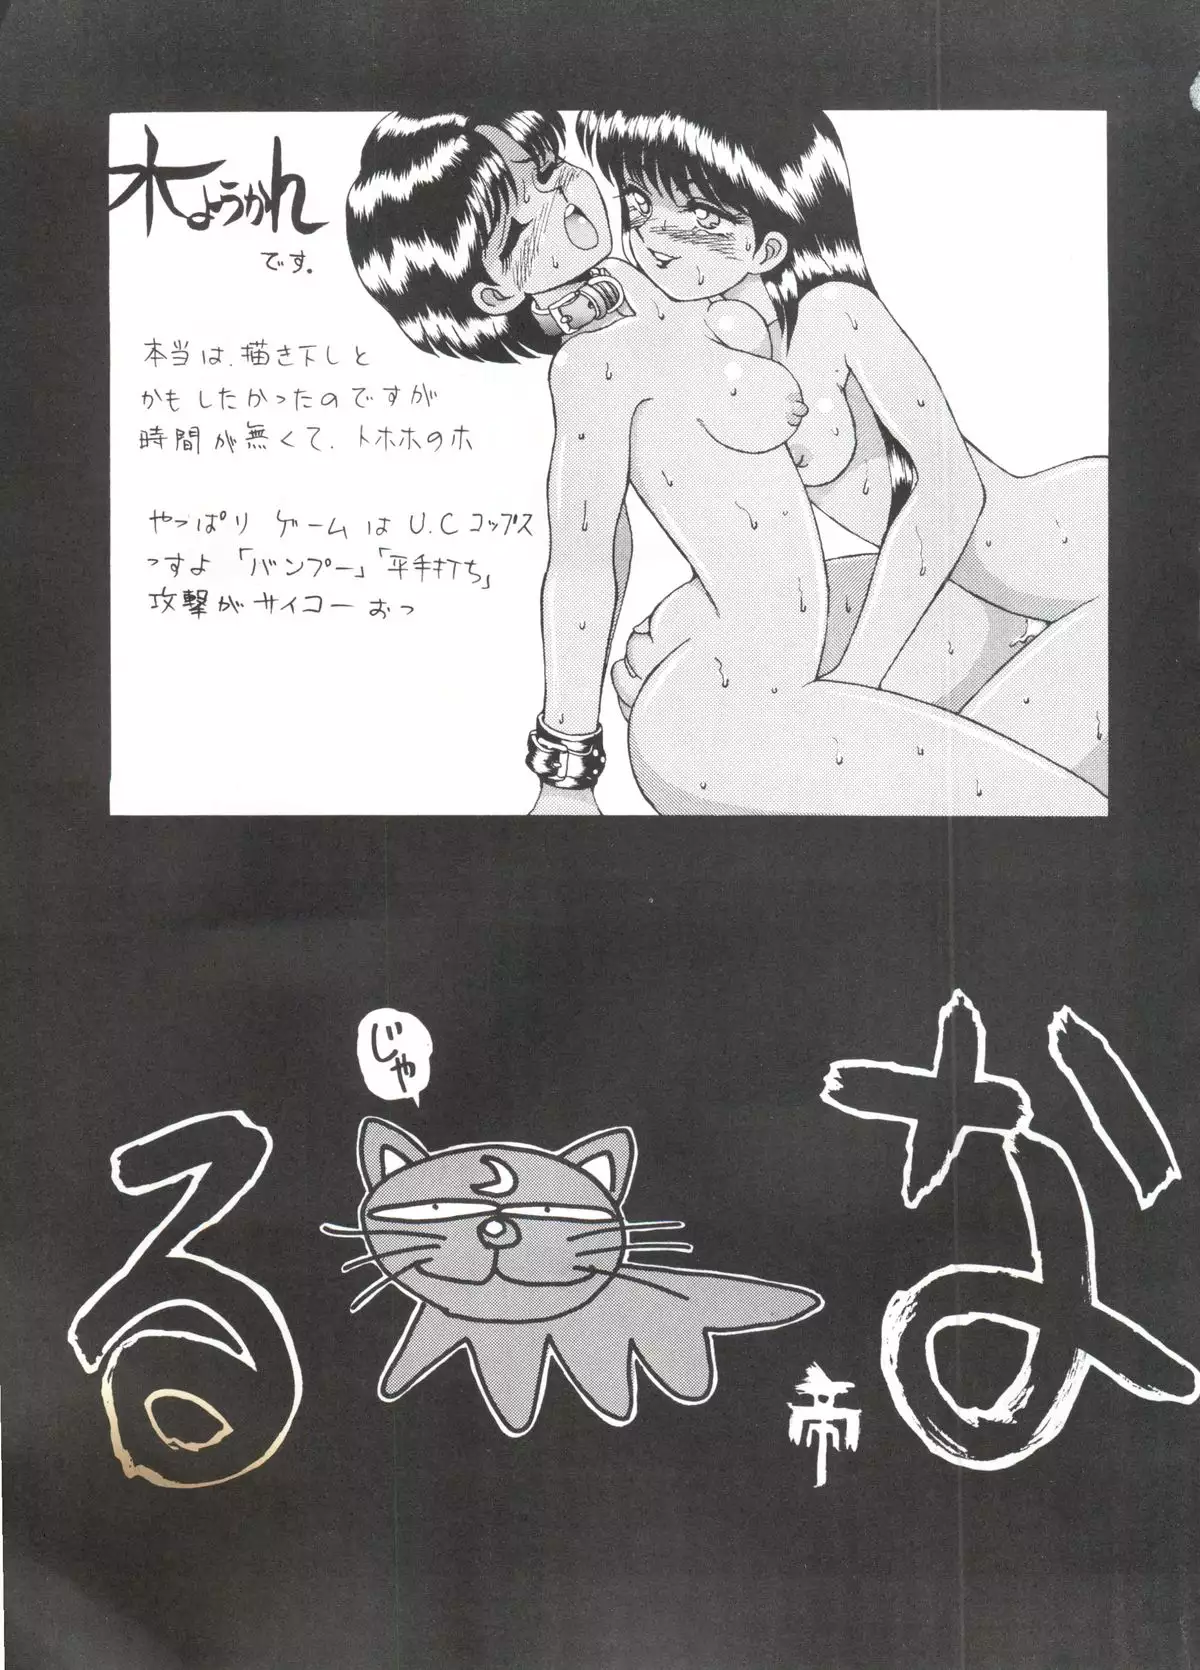 木ようかれ
です。
本当は、描き下しと
かもしたかったのですが
時間が無くて、トホホのホ
やっぱり ゲームは U.Cコップス
っすよ 「バンプー」「平手打ち」
攻撃がサイコーおっ
な
帝
じゃ
る